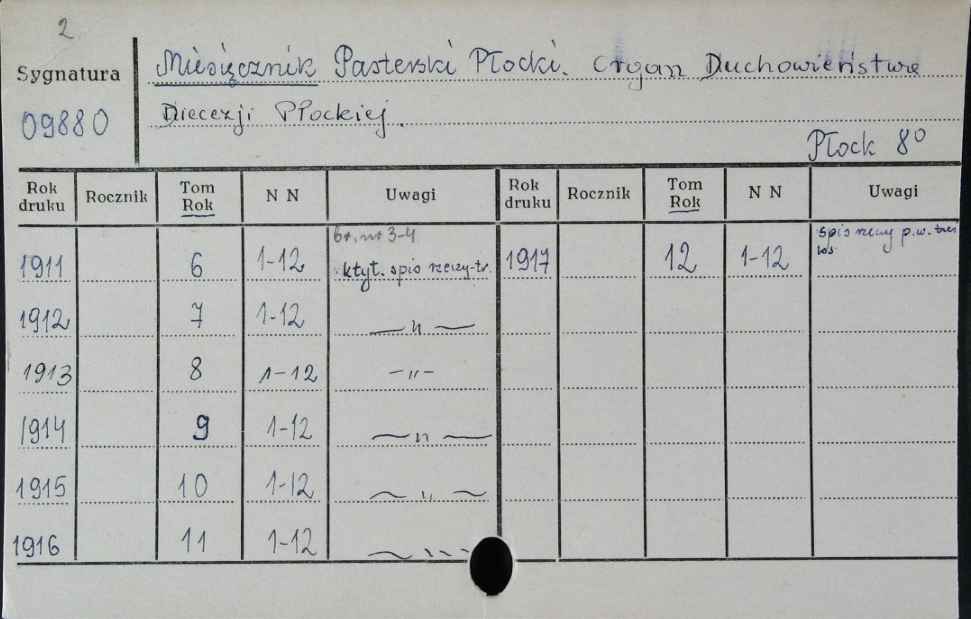 2
Sygnatura
09880
Miesięcznik Pasterski Płocki. Organ Duchowieństwa
Diecezji Płockiej.
Płock 8°
Rok druku Rocznik Tom Rok N N Uwagi Rok druku Rocznik Tom Rok N N Uwagi
br. nr 3-4 spis rzeczy p.w.
1911 6 1-12 spis rzeczy-tr. 1917 12 1-12
1912 7 1-12 — " —
1913 8 1-12 — " —
1914 9 1-12 — " —
1915 10 1-12 — " —
1916 11 1-12 — " —